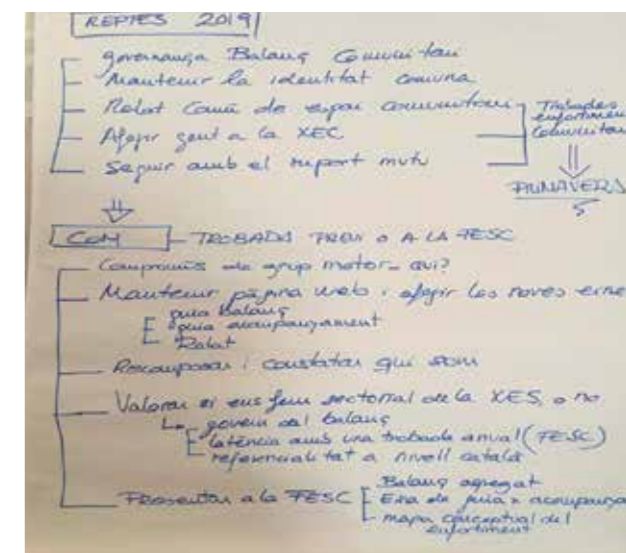 REPTES 2019
governança Balanç Comunitari
Mantenir la identitat comuna
Relat Comú de espai comunitaris
Afegir gent a la XEC
Seguir amb el suport mutu
Trobades
enfortiment
Comunitari
PRIMAVERS
COM TROBADA PREU o A LA FESC
Compromís de grup motor - qui?
Mantenir pàgina web i afegir les noves eine
guia balanç
guia acompanyament
Relat
Recomposar i constatar qui som
Valorar si ens fem sectorial de la XES, o no
govern del balanç
latència amb una trobada anual (FESC)
referencialitat a nivell català
Presentar a la FESC
Balanç agregat
Eina de guia x acompanya
mapa conceptual del
enfortiment